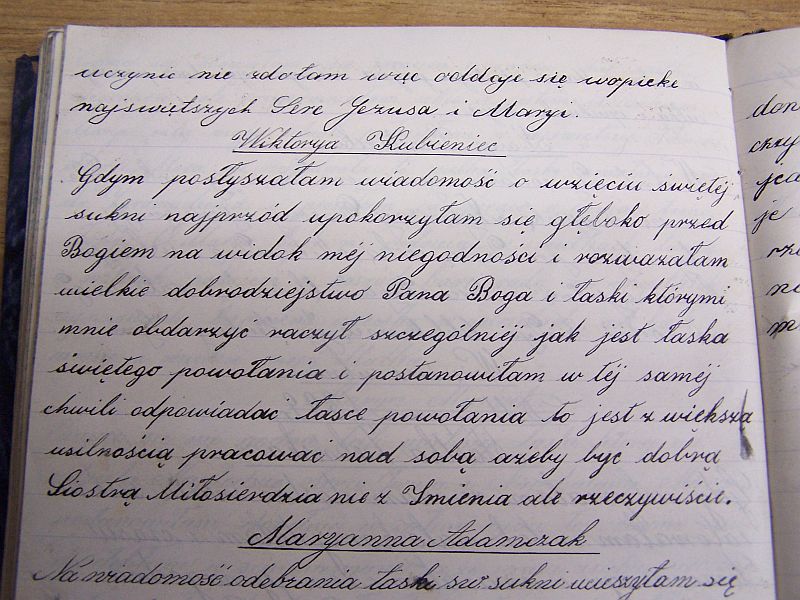 uczynic nie zdołam więc oddaje się w opiekę
najswiętszych Serc Jezusa i Maryi.
Wiktorya Kubieniec
Gdym posłyszałam wiadomość o wzięciu świętéj
sukni najprzód upokorzyłam się głęboko przed
Bogiem na widok méj niegodności i rozważałam
wielkie dobrodziejstwo Pana Boga i łaski którymi
mnie obdarzyć raczył szczególniéj jak jest łaska
świętego powołania i postanowiłam w téj saméj
chwili odpowiadać łasce powołania to jest z większą
usilnością pracować nad sobą ażeby być dobrą
Siostrą Miłosierdzia nie z Imienia ale rzeczywiście.
Maryanna Adamczak
Na wiadomość odebrania łaski św. sukni ucieszyłam się
don
czy
je